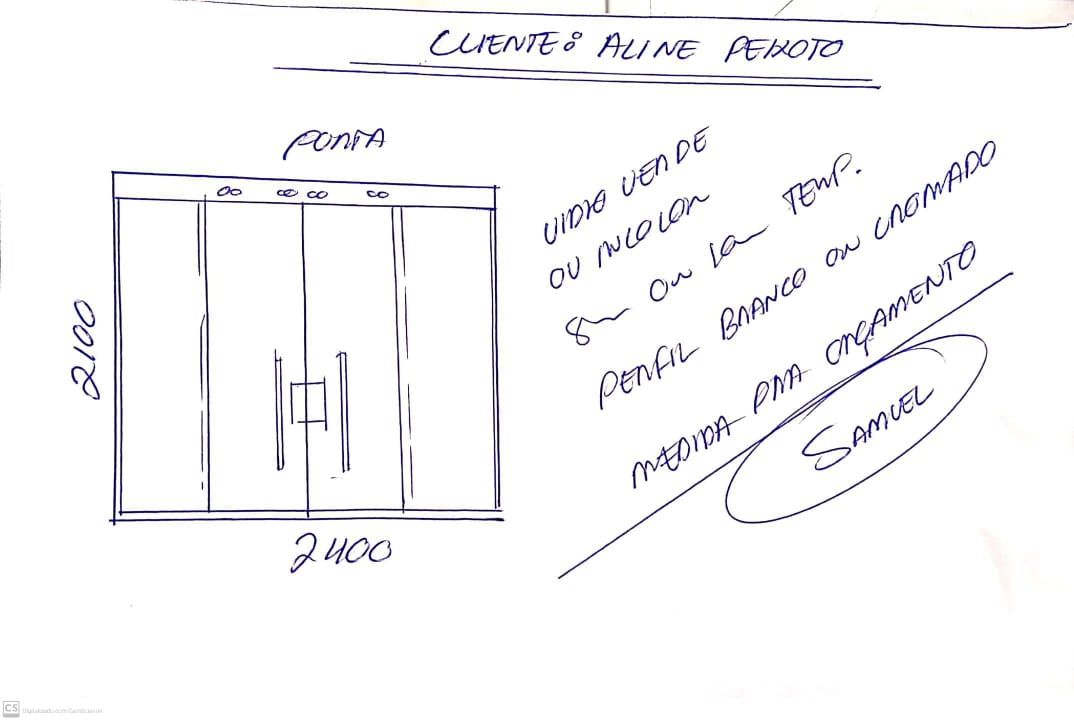 CLIENTE: ALINE PEIXOTO
PORTA
VIDRO VERDE
OU INCOLOR
8m ou 10m TEMP.
PERFIL BRANCO OU CROMADO
MEDIDA PRA ORÇAMENTO
SAMUEL
2100
2400
CS Digitalizado com CamScanner